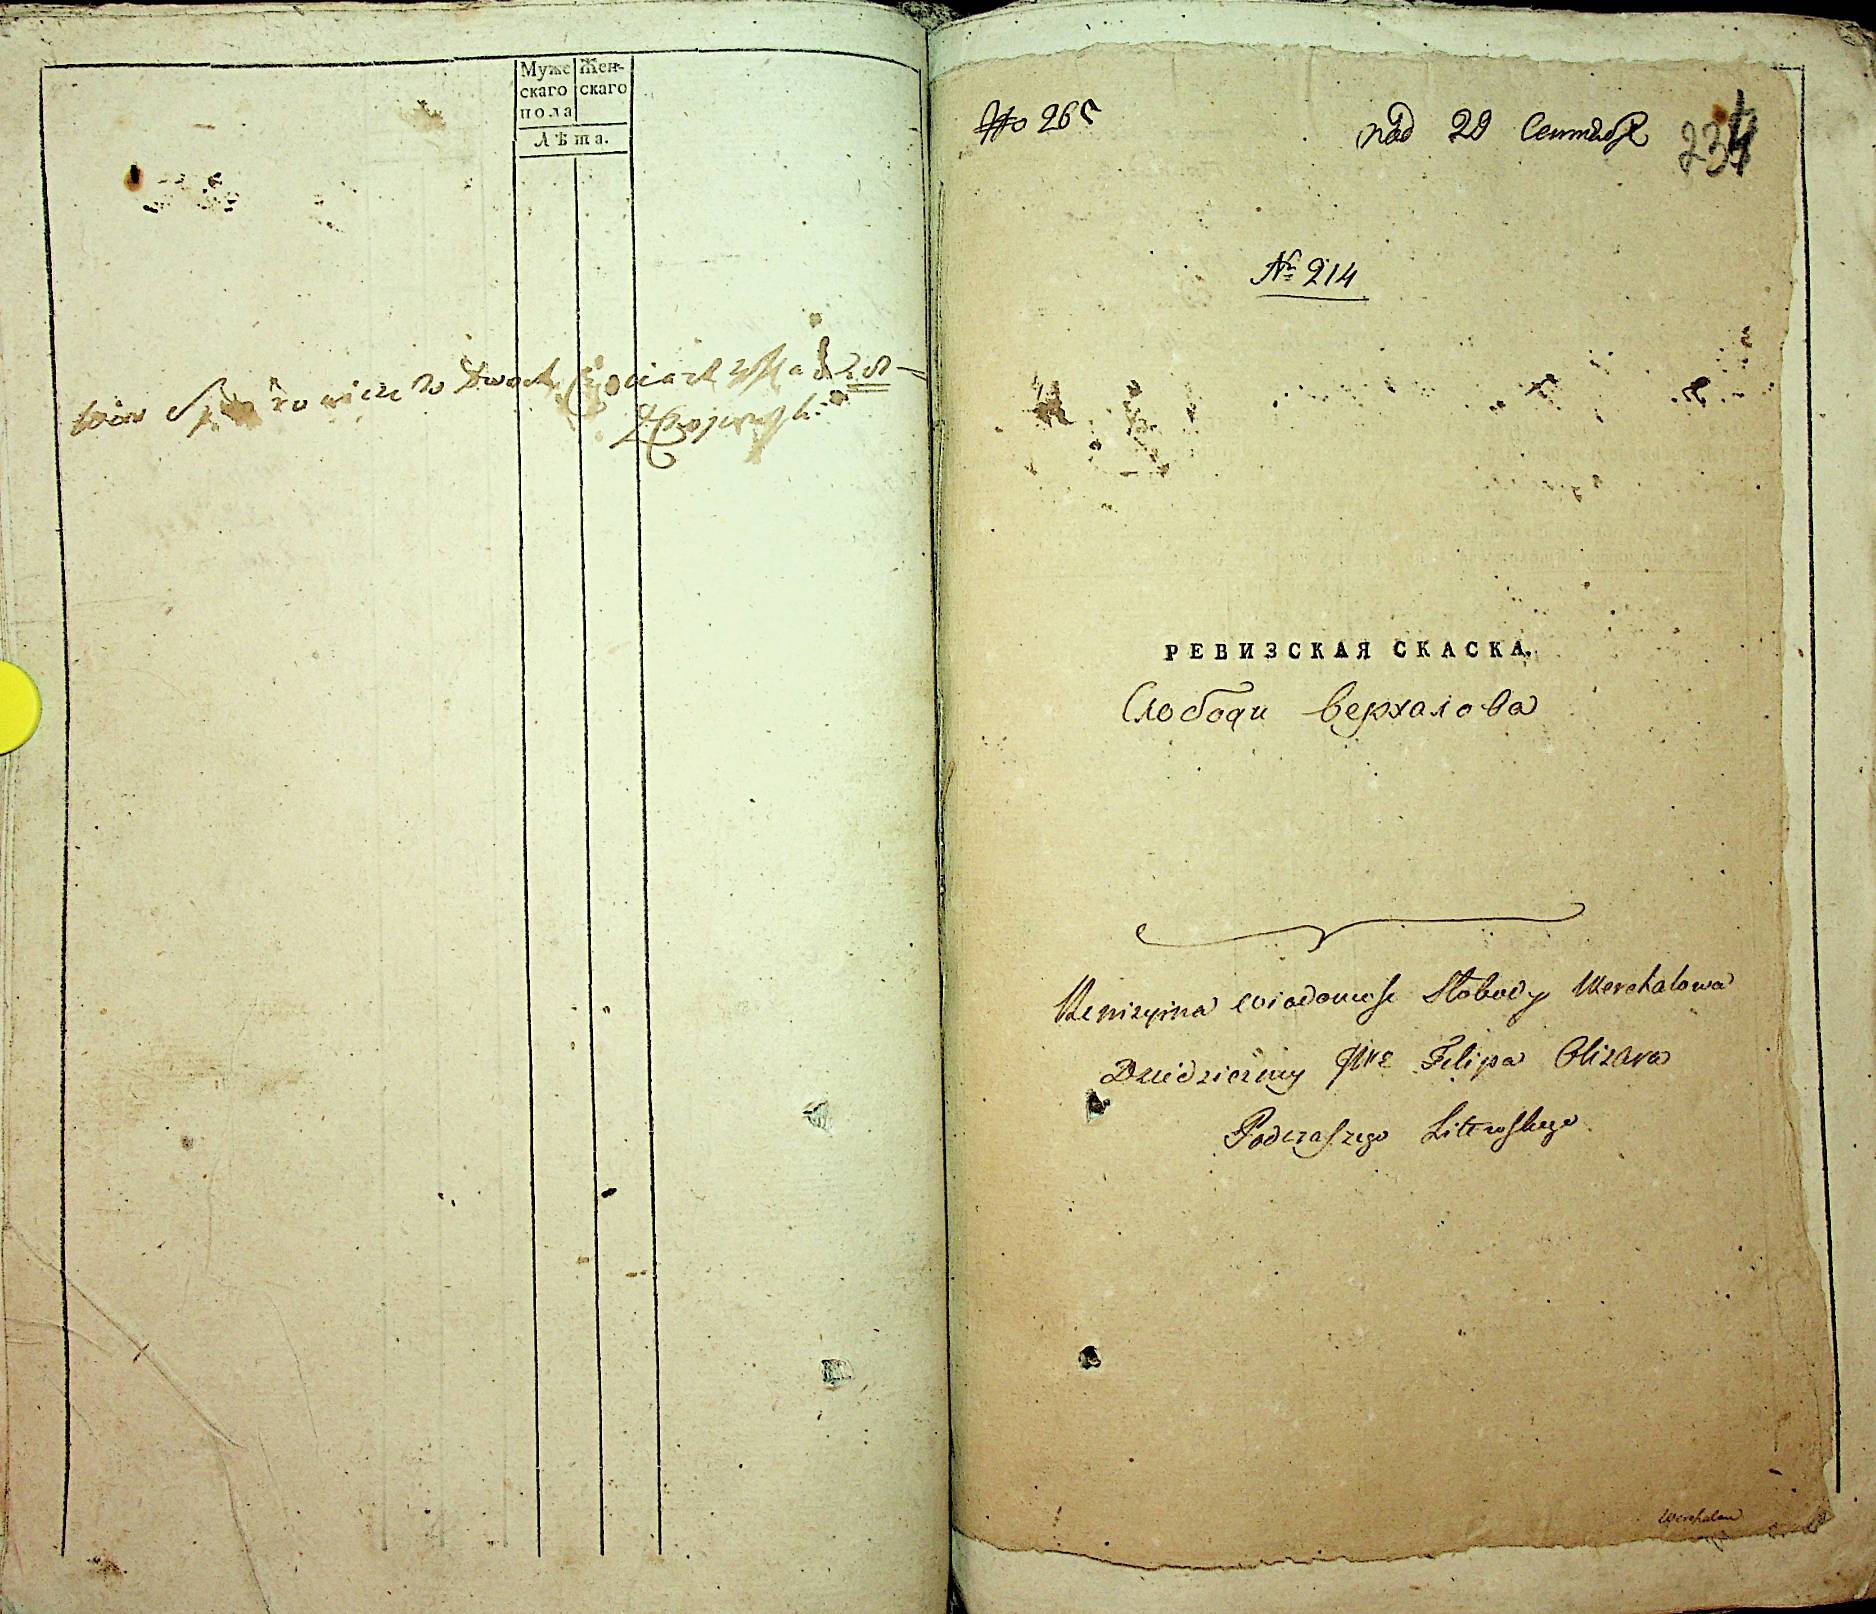 Муже Жен-
скаго скаго
пола
Лѣта.
No 265
под 29 Сентября
234
№ 214
РЕВИЗСКАЯ СКАСКА.
Слободи верхалова
Rewizyina wiadomosc Słobody Werchalowa
Dziedziczney JWe Filipa Olizara
Podczaszego Litewskiego
Werchalow